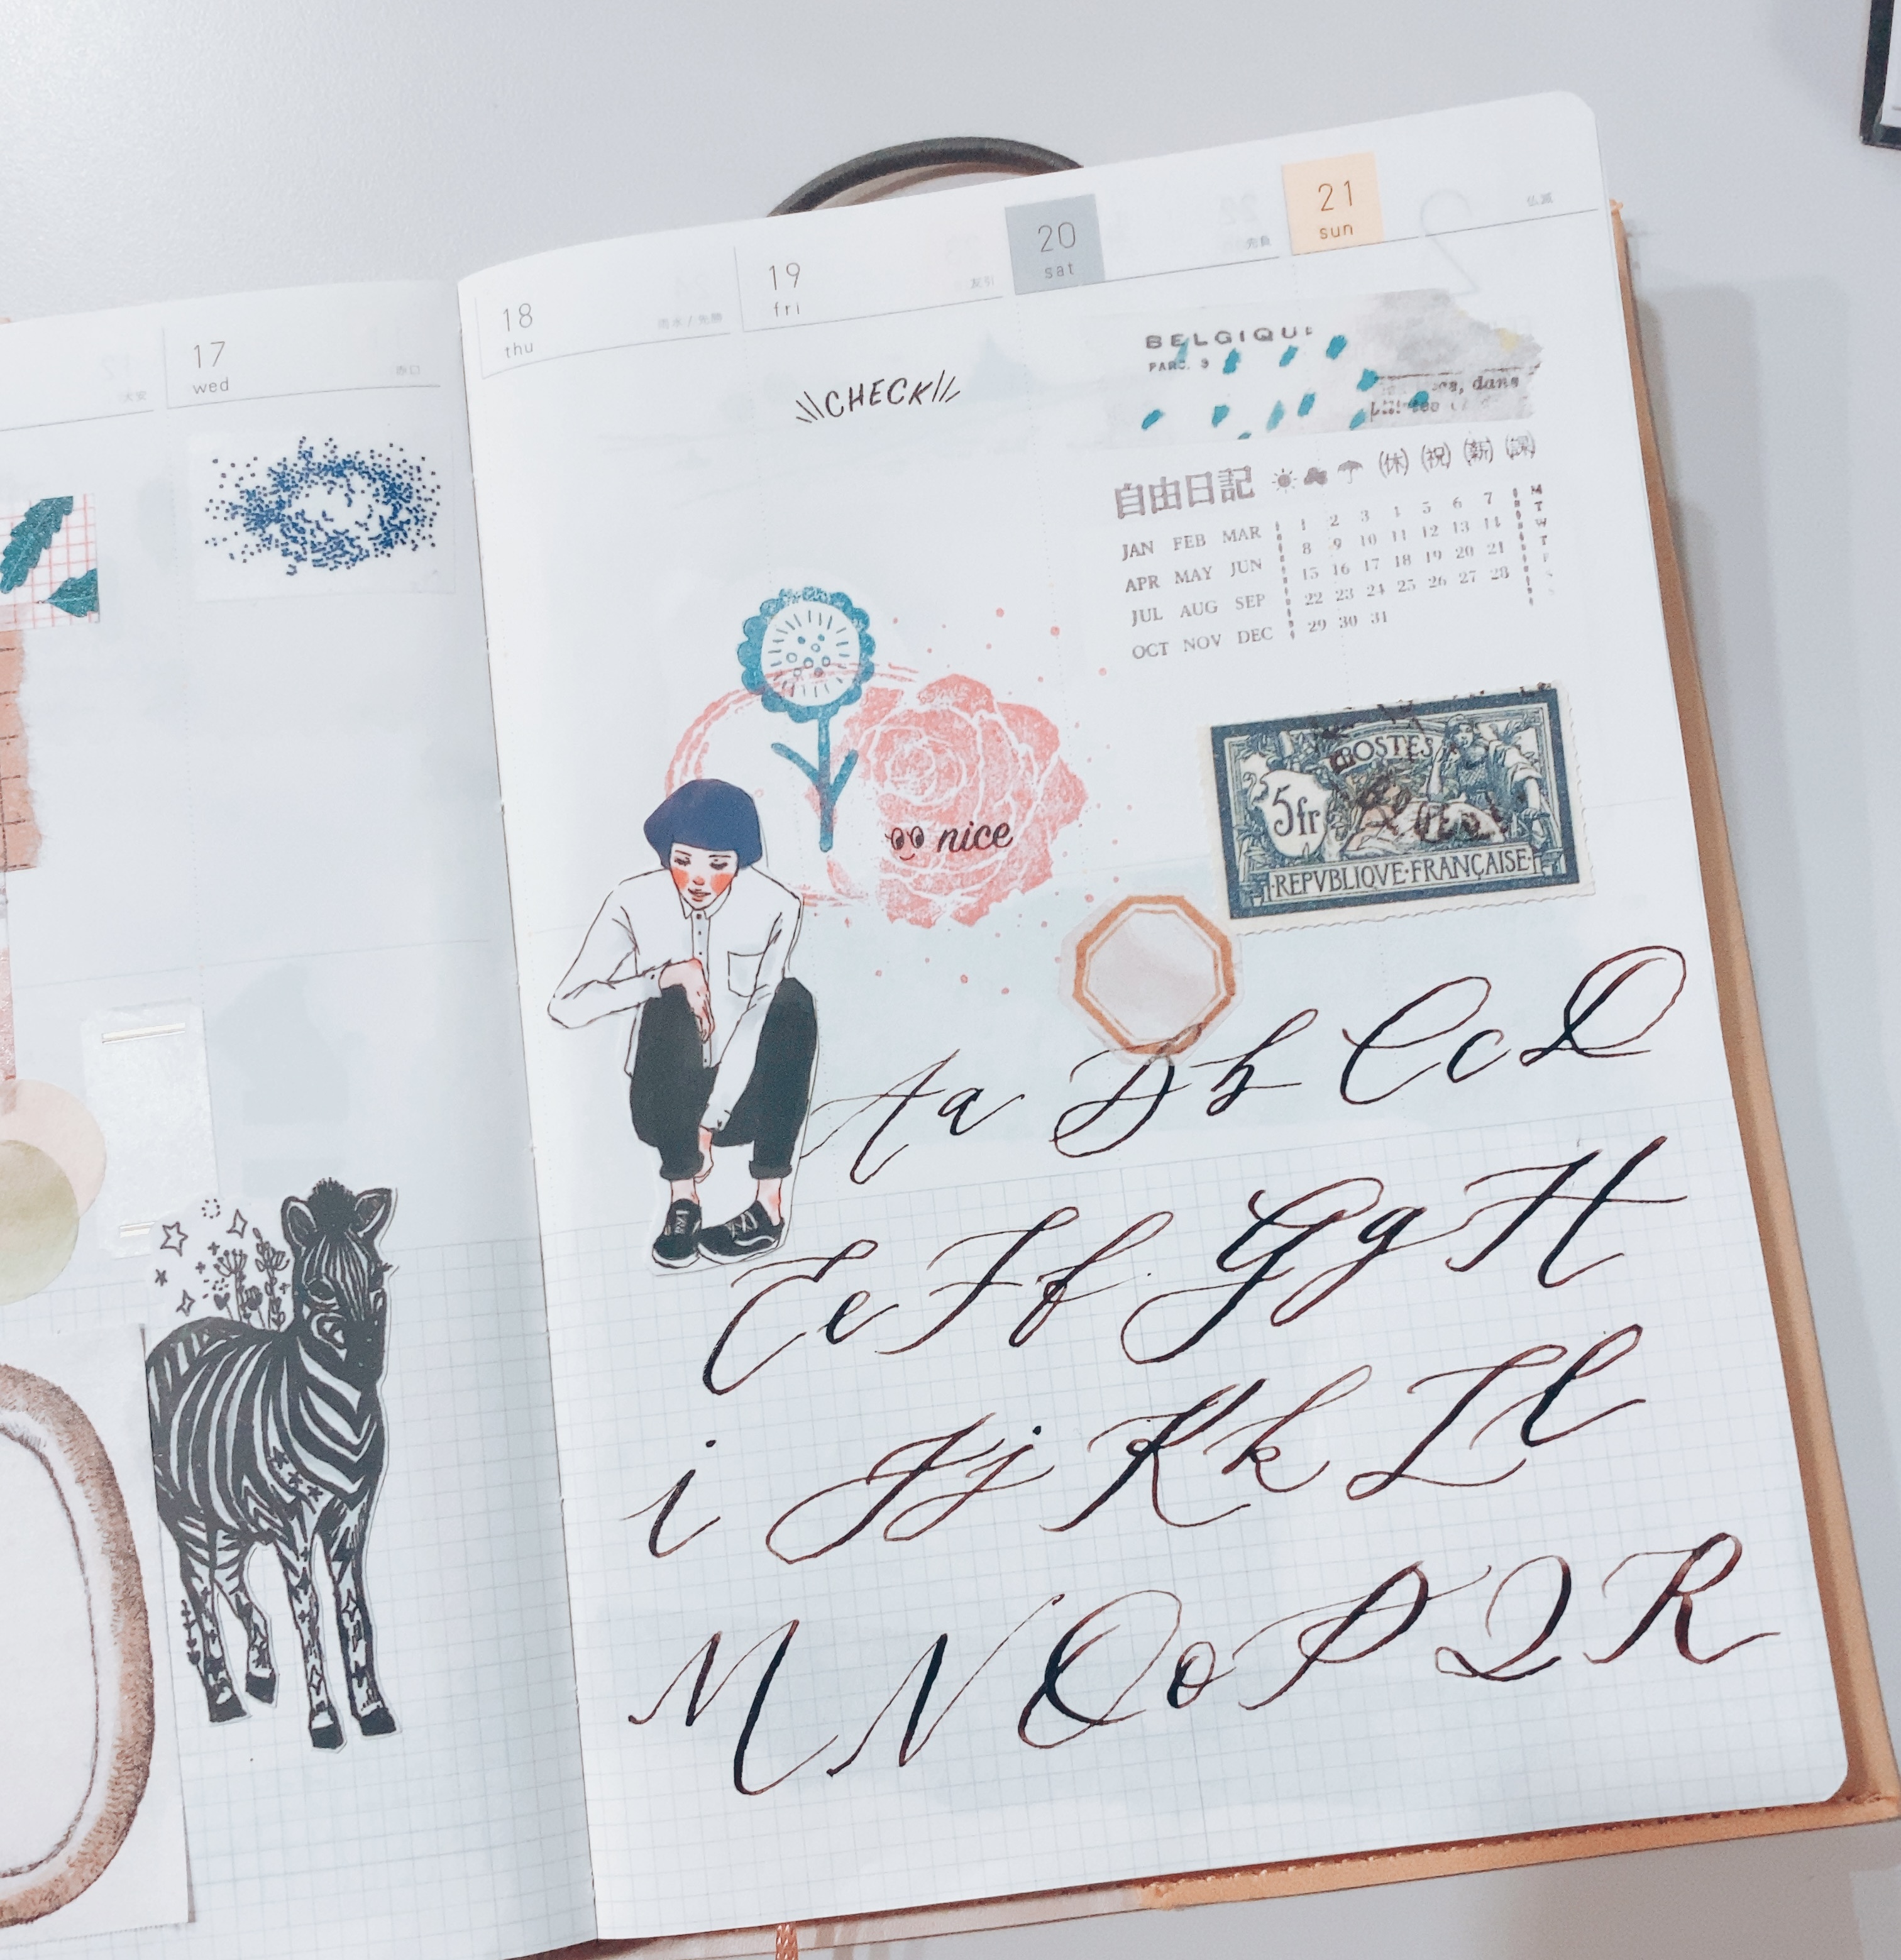 17
wed
赤口
大安
18
thu
雨水/先勝
19
fri
友引
20
sat
先負
21
sun
仏滅
CHECK
BELGIQUE
PARC. 9
dans
自由日記 (休) (祝) (薪) (課)
JAN FEB MAR 1 2 3 4 5 6 7 M
APR MAY JUN 8 9 10 11 12 13 14 T
JUL AUG SEP 15 16 17 18 19 20 21 W
OCT NOV DEC 22 23 24 25 26 27 28 T
29 30 31
POSTES
5fr
REPVBLIQVE·FRANÇAISE
nice
Aa Bb Cc D
Ee Ff Gg H
i Jj Kk Ll
M N Oo P Q R